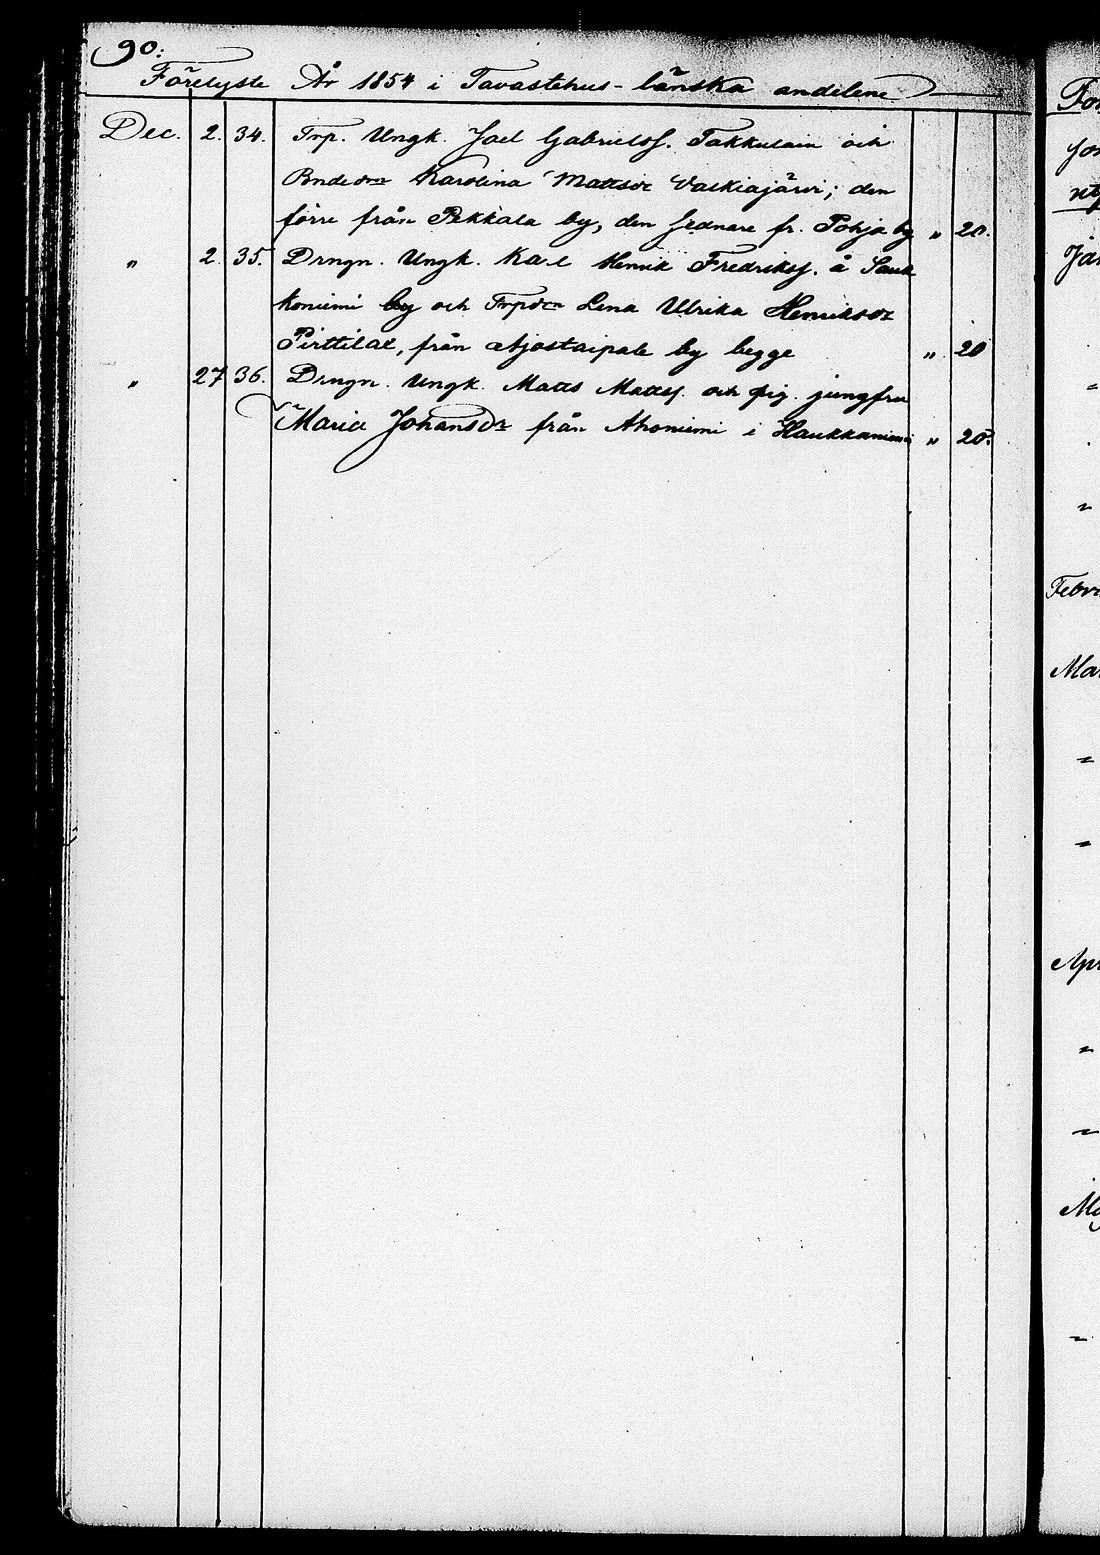 90:
Förelyste År 1854 i Tavastehus-länska andelene
Dec. 2. 34. Trp. Ungk. Joel Gabrielss. Takkulain och
Bndedr Karolina Mattsdr Vaskiajärvi; den
förre från Pekkala by, den sednare fr. Pohja by " 20.
" 2. 35. Drngn. Ungk. Karl Henrik Fredrikss. å Sauk
koniemi by och Trpdr Lena Ulrika Henriksdr
Pirttilax, från Ajostaipale by begge " 20
" 27 36. Drngn. Ungk. Matts Mattss. och pig. jungfru
Maria Johansdr från Ahoniemi i Haukkaniemi " 20.
For
Jan
"
"
Febr
Mar
"
"
Apr
"
"
"